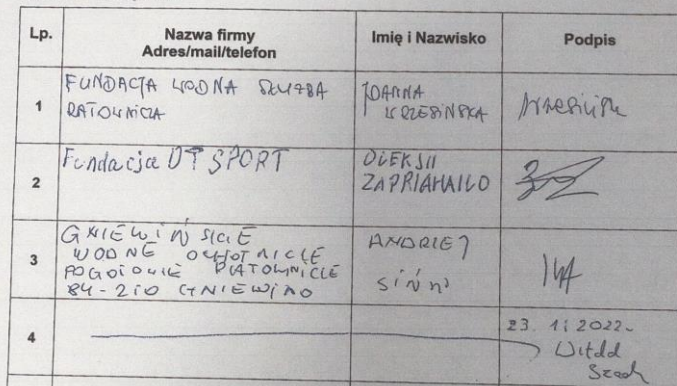 Lp.
Nazwa firmy
Adres/mail/telefon
Imię i Nazwisko
Podpis
1
FUNDACJA WODNA SŁUŻBA
RATOWNICZA
JOANNA
WRZESIŃSKA
Wrzesińska
2
Fundacja DT SPORT
OLEKSII
ZAPRIAHAILO
3
GNIEWIŃSKIE
WODNE OCHOTNICZE
POGOTOWIE RATOWNICZE
84-210 GNIEWINO
ANDRZEJ
4
23. 11 2022
Witold